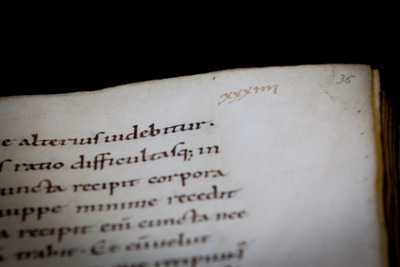 xxxıııı
36
e alterius uidebitur.
s ratio difficultasq; in
uncta recipit corpora
uippe minime recedit
a recipit eni cuncta nec
trahit. Et